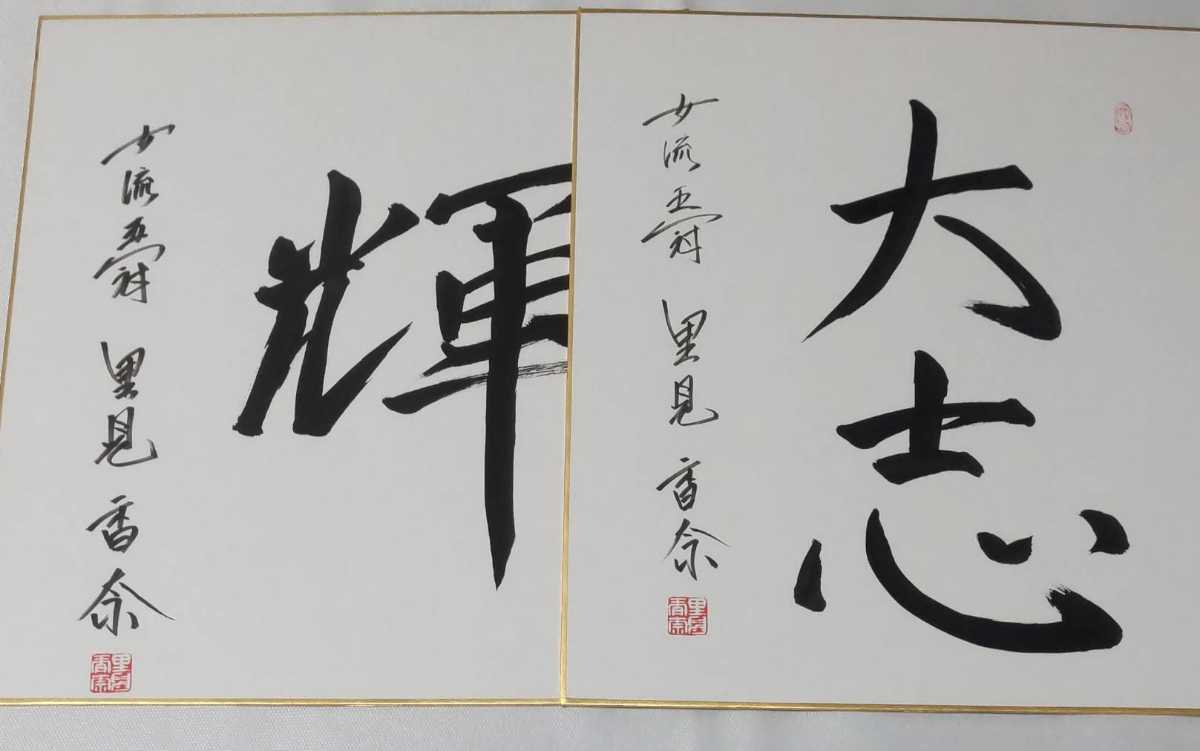 大志
女流五冠 里見香奈
里見香奈
輝
女流五冠 里見香奈
里見香奈